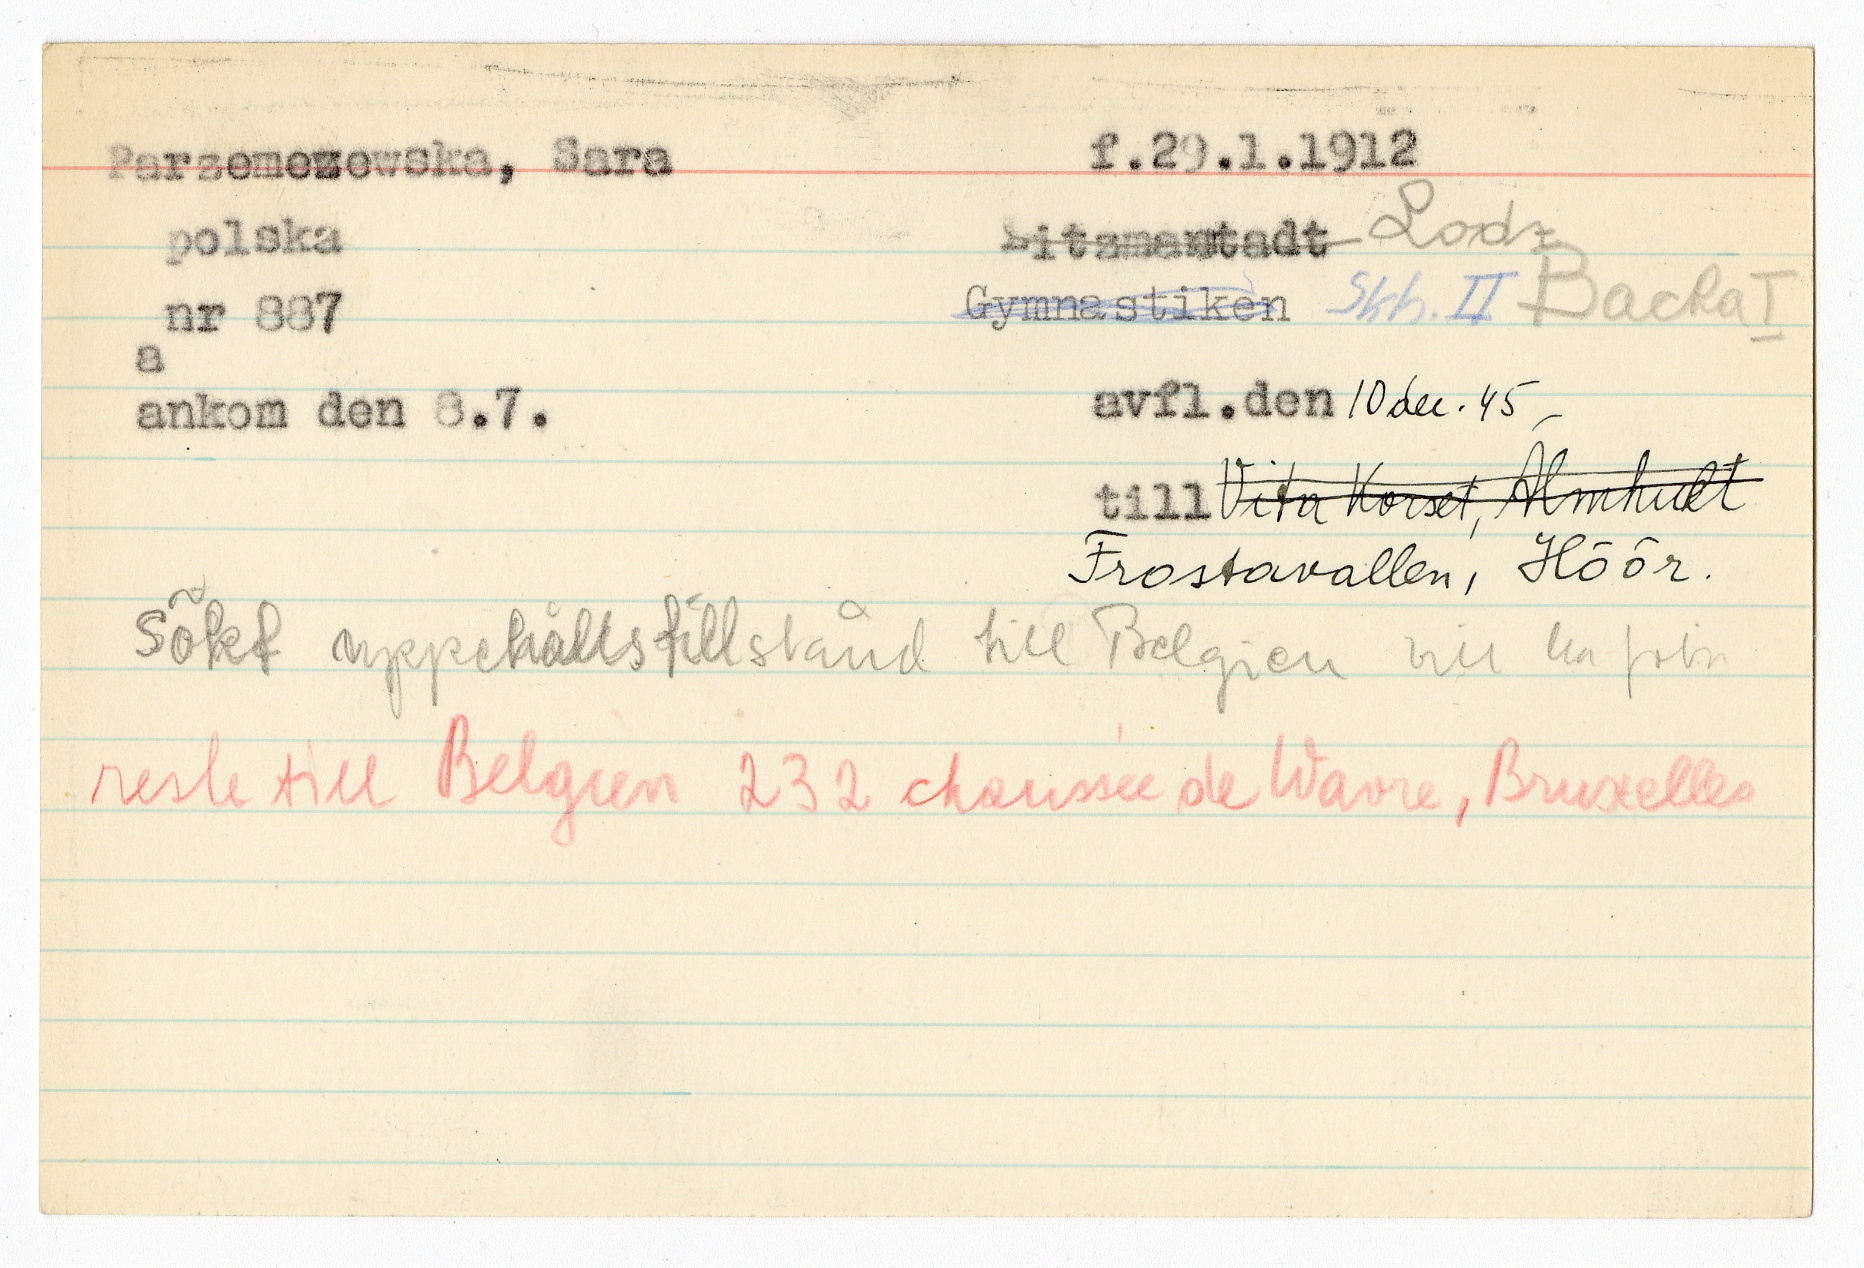 Parzemezewska, Sara f.29.1.1912
polska Litzmanstadt Lodz
nr 887 Gymnastiken Skh. II Backa I
a
ankom den 8.7. avfl.den 10 dec. 45
till Vita Korset, Älmhult
Frostavallen, Höör.
Sökt uppehållstillstånd till Belgien vill ha
reste till Belgien 232 chaussée de Wavre, Bruxelles